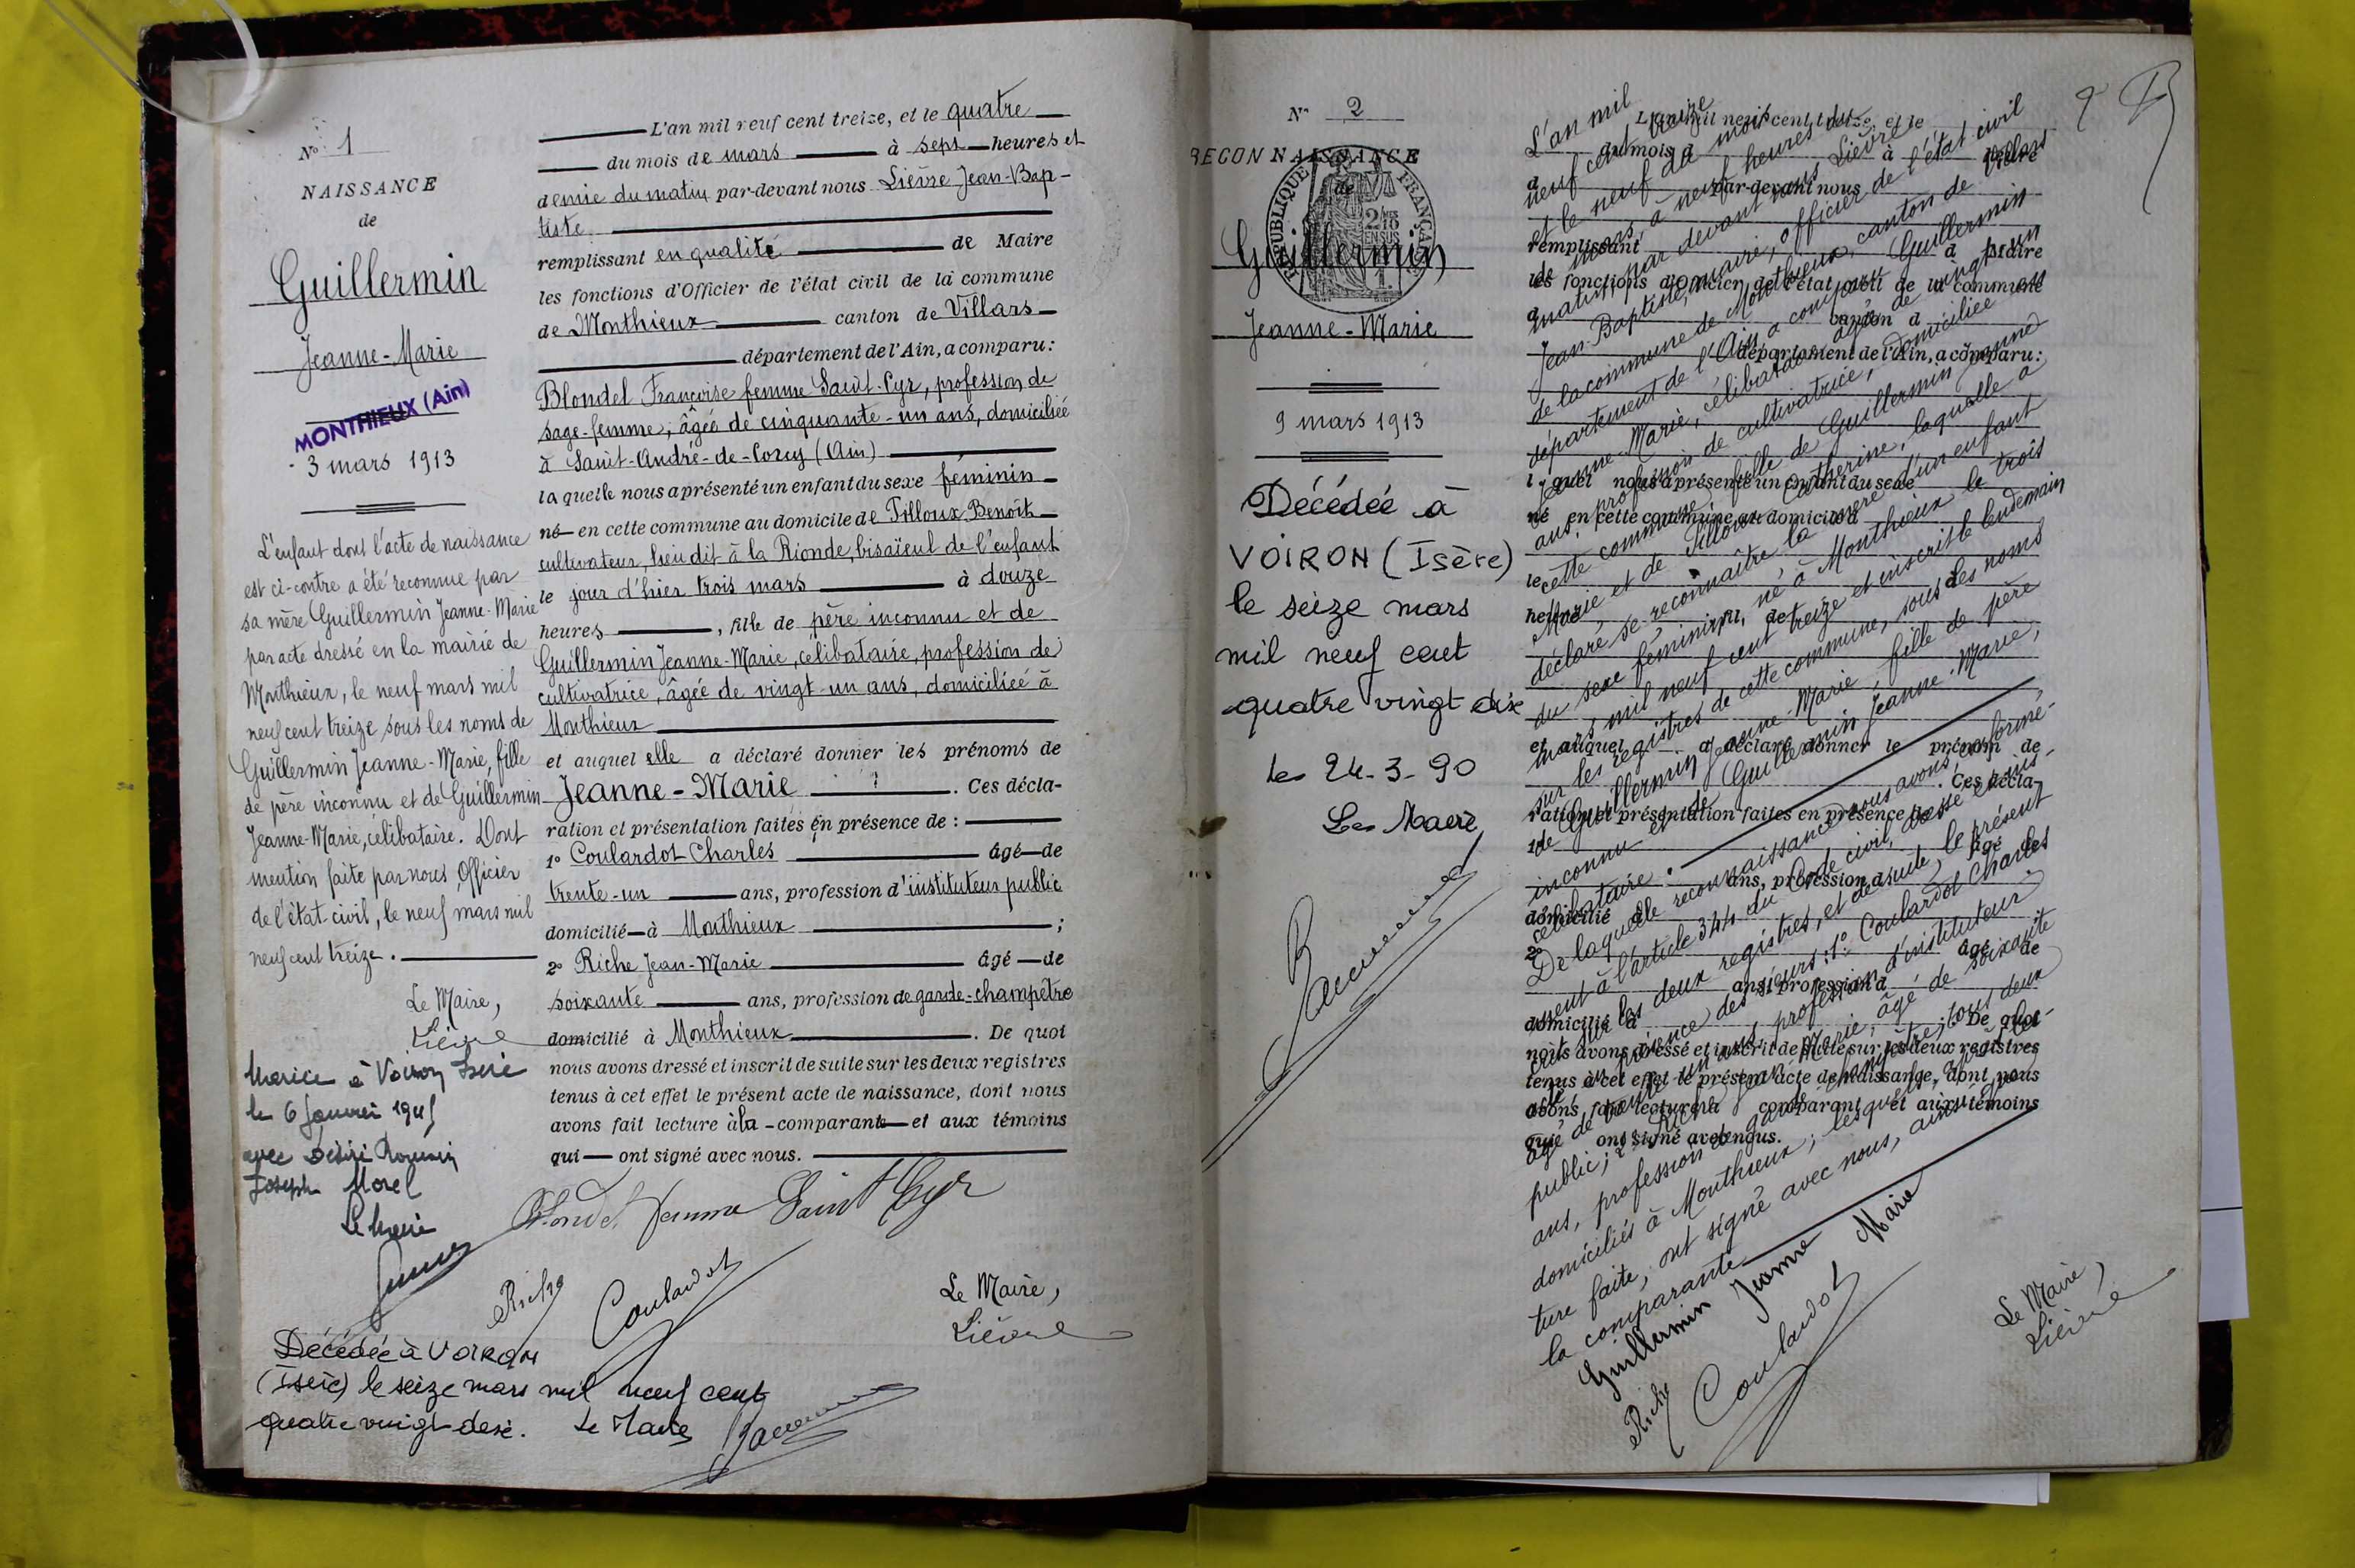 N° 1
NAISSANCE
de
Guillermin
Jeanne-Marie
MONTHIEUX (Ain)
3 mars 1913
L'enfant dont l'acte de naissance
est ci-contre a été reconnue par
sa mère Guillermin Jeanne-Marie
par acte dressé en la mairie de
Monthieux, le neuf mars mil
neuf cent treize sous les noms de
Guillermin Jeanne-Marie, fille
de père inconnu et de Guillermin
Jeanne-Marie, célibataire. Dont
mention faite par nous, Officier
de l'état-civil, le neuf mars mil
neuf cent treize.
Le Maire,
Lièvre
Mariée à Voiron Isère
le 6 Janvier 1945
avec Désiré Romain
Joseph Morel
Le Maire
L'an mil neuf cent treize, et le quatre
du mois de mars à sept heures et
demie du matin par-devant nous Lièvre Jean-Bap-
tiste
remplissant en qualité de Maire
les fonctions d'Officier de l'état civil de la commune
de Monthieux canton de Villars
département de l'Ain, a comparu :
Blondel Françoise femme Saint-Cyr, profession de
sage-femme, âgée de cinquante-un ans, domiciliée
à Saint-André-de-Corcy (Ain)
laquelle nous a présenté un enfant du sexe féminin
né en cette commune au domicile de Tilloux Benoît
cultivateur, lieu dit à la Rionde, bisaïeul de l'enfant
le jour d'hier trois mars à douze
heures, fille de père inconnu et de
Guillermin Jeanne-Marie, célibataire, profession de
cultivatrice, âgée de vingt-un ans, domiciliée à
Monthieux
et auquel elle a déclaré donner les prénoms de
Jeanne-Marie. Ces décla-
ration et présentation faites en présence de :
1° Coulardot Charles âgé de
trente-un ans, profession d'instituteur public
domicilié à Monthieux ;
2° Riche Jean-Marie âgé de
soixante ans, profession de garde-champêtre
domicilié à Monthieux. De quoi
nous avons dressé et inscrit de suite sur les deux registres
tenus à cet effet le présent acte de naissance, dont nous
avons fait lecture à la comparante et aux témoins
qui ont signé avec nous.
Blondel femme Saint Cyr
Riche
Coulardot
Le Maire,
Lièvre
Décédée à VOIRON
(Isère) le seize mars mil neuf cent
quatre vingt-dix. Le Maire
N° 2
RECONNAISSANCE
de
RÉPUBLIQUE FRANÇAISE
Guillermin
Jeanne-Marie
9 mars 1913
Décédée à
VOIRON (Isère)
le seize mars
mil neuf cent
quatre vingt dix
le 24-3-90
Le Maire
2
L'an mil
neuf cent treize
et le neuf du mois
de mars, à neuf heures du
matin, par devant nous Lièvre
Jean-Baptiste, maire, officier de l'état civil
de la commune de Monthieux, canton de Villars
département de l'Ain, a comparu Guillermin
Jeanne-Marie, célibataire, âgée de vingt-un
ans, profession de cultivatrice, domiciliée en
cette commune, fille de Guillermin Jeanne
Marie et de Tilloux Catherine, laquelle a
déclaré se reconnaître la mère d'un enfant
du sexe féminin, né à Monthieux le trois
mars mil neuf cent treize et inscrit le lendemain
sur les registres de cette commune, sous les noms
de Guillermin Jeanne-Marie, fille de père
inconnu et de Guillermin Jeanne-Marie,
célibataire.
De laquelle reconnaissance nous avons, conformé-
ment à l'article 344 du Code civil, dressé et ins-
crit sur les deux registres, et de suite, le présent
acte en présence des sieurs : 1° Coulardot Charles
âgé de trente-un ans, profession d'instituteur
public ; 2° Riche Jean-Marie, âgé de soixante
ans, profession de garde-champêtre, tous deux
domiciliés à Monthieux, lesquels, après lec-
ture faite, ont signé avec nous, ainsi que
la comparante
Guillermin Jeanne Marie
Riche
Coulardot
Le Maire,
Lièvre